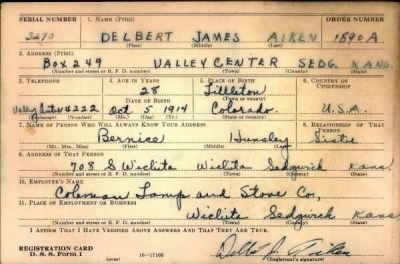 SERIAL NUMBER 1. NAME (Print) ORDER NUMBER
DELBERT JAMES AIKEN 1890A
(First) (Middle) (Last)
2. ADDRESS (Print)
BOX 249 VALLEY CENTER SEDG. KANS
(Number and street or R. F. D. number) (Town) (County) (State)
3. TELEPHONE 4. AGE IN YEARS 5. PLACE OF BIRTH 6. COUNTRY OF CITIZENSHIP
28
DATE OF BIRTH (Town or county)
4222 Oct 5 1914 Colorado U.S.A.
(Exchange) (Number) (Mo.) (Day) (Yr.) (State or country)
7. NAME OF PERSON WHO WILL ALWAYS KNOW YOUR ADDRESS 8. RELATIONSHIP OF THAT PERSON
Bernice Hunsley Sister
(Mr., Mrs., Miss) (First) (Middle) (Last)
9. ADDRESS OF THAT PERSON
708 S Wichita Wichita Sedgwick Kans.
(Number and street or R. F. D. number) (Town) (County) (State)
10. EMPLOYER'S NAME
Coleman Lamp and Stove Co,
11. PLACE OF EMPLOYMENT OR BUSINESS
Wichita Sedgwick Kans
(Number and street or R. F. D. number) (Town) (County) (State)
I AFFIRM THAT I HAVE VERIFIED ABOVE ANSWERS AND THAT THEY ARE TRUE.
REGISTRATION CARD
D. S. S. Form 1 16-17105
(Registrant's signature)